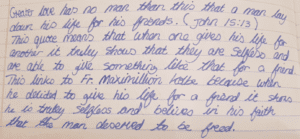 Greater love has no man than this that a man lay
down his life for his friends. (John 15:13)
This quote means that when one gives his life for
another it truly shows that they are selfless and
are able to give something like that for a friend.
This links to Fr. Maximillion Kolbe because when
he decided to give his life for a friend it shows
he is truly selfless and belives in his faith
that the man deserved to be freed.